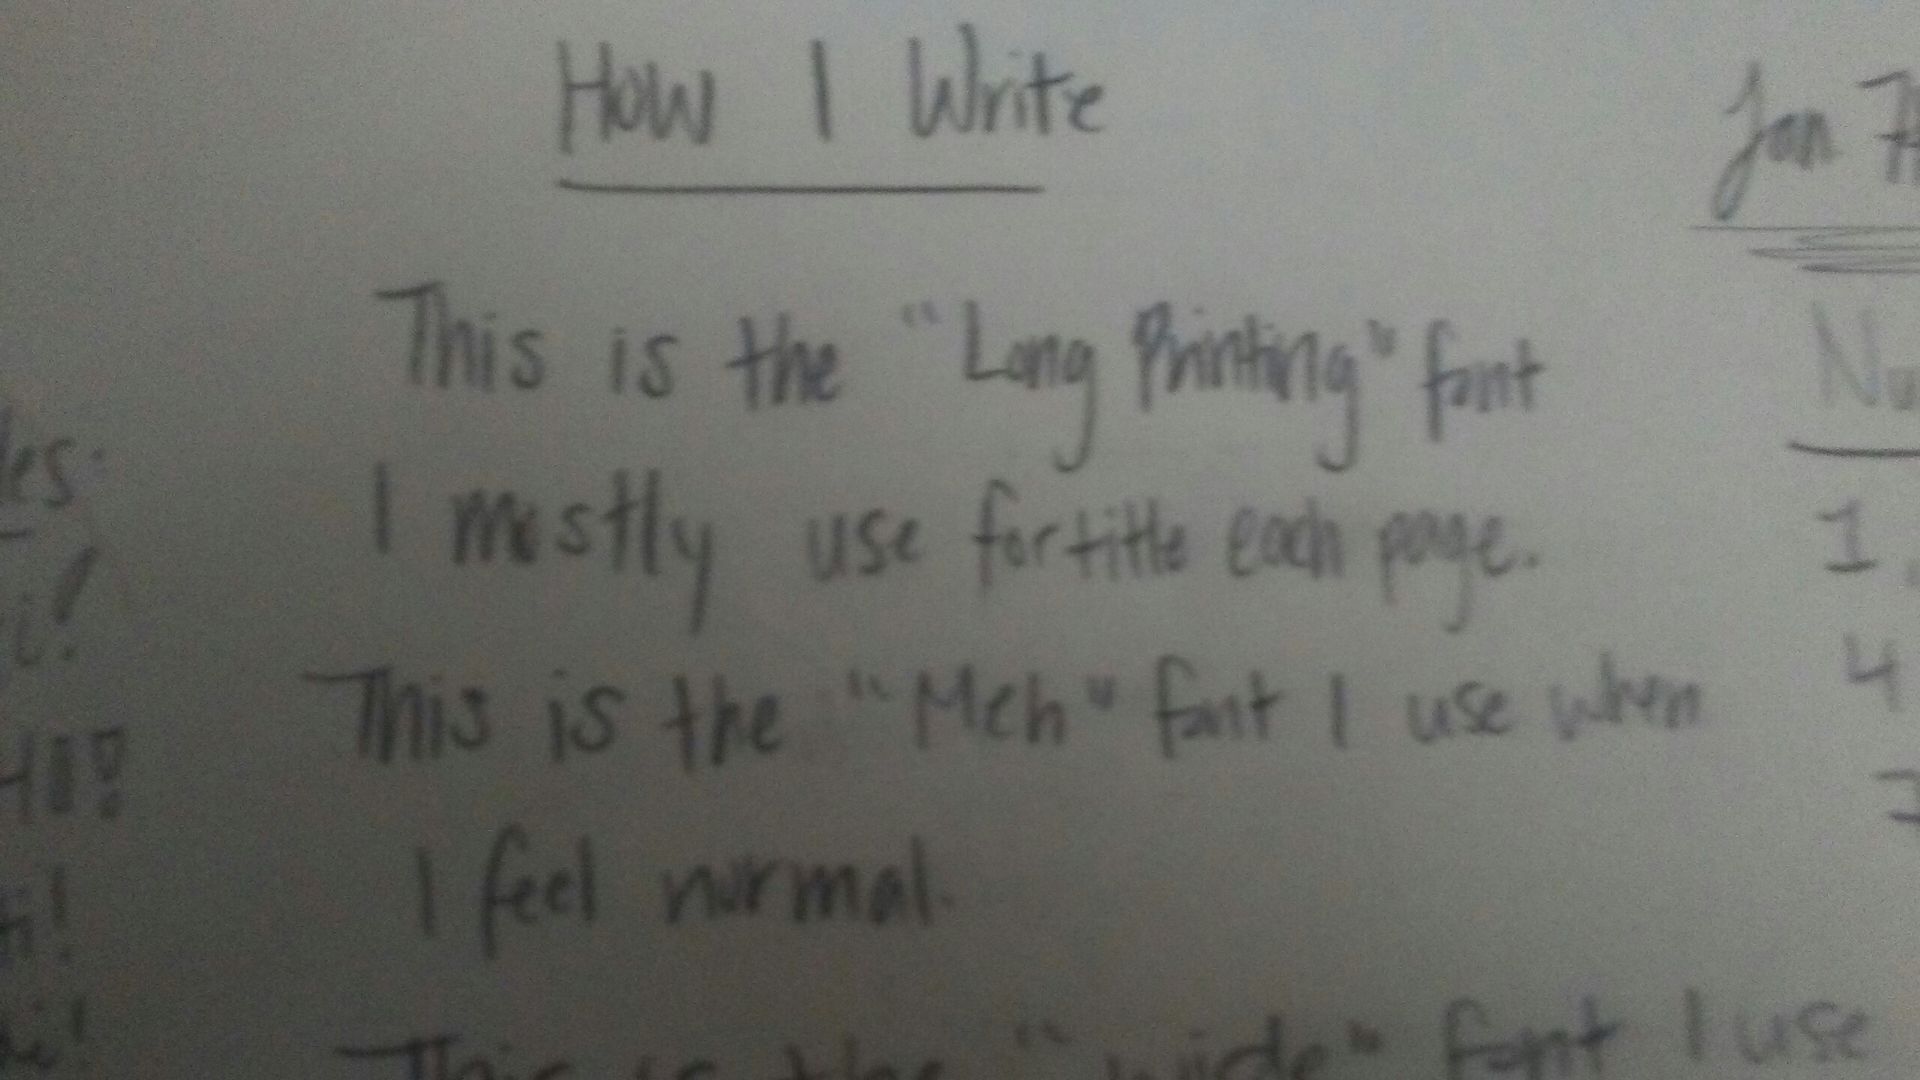 How I Write
This is the "Long Printing" font
I mostly use for title each page.
This is the "Meh" font I use when
I feel normal.
This is the "wide" font I use
Jan
1
4